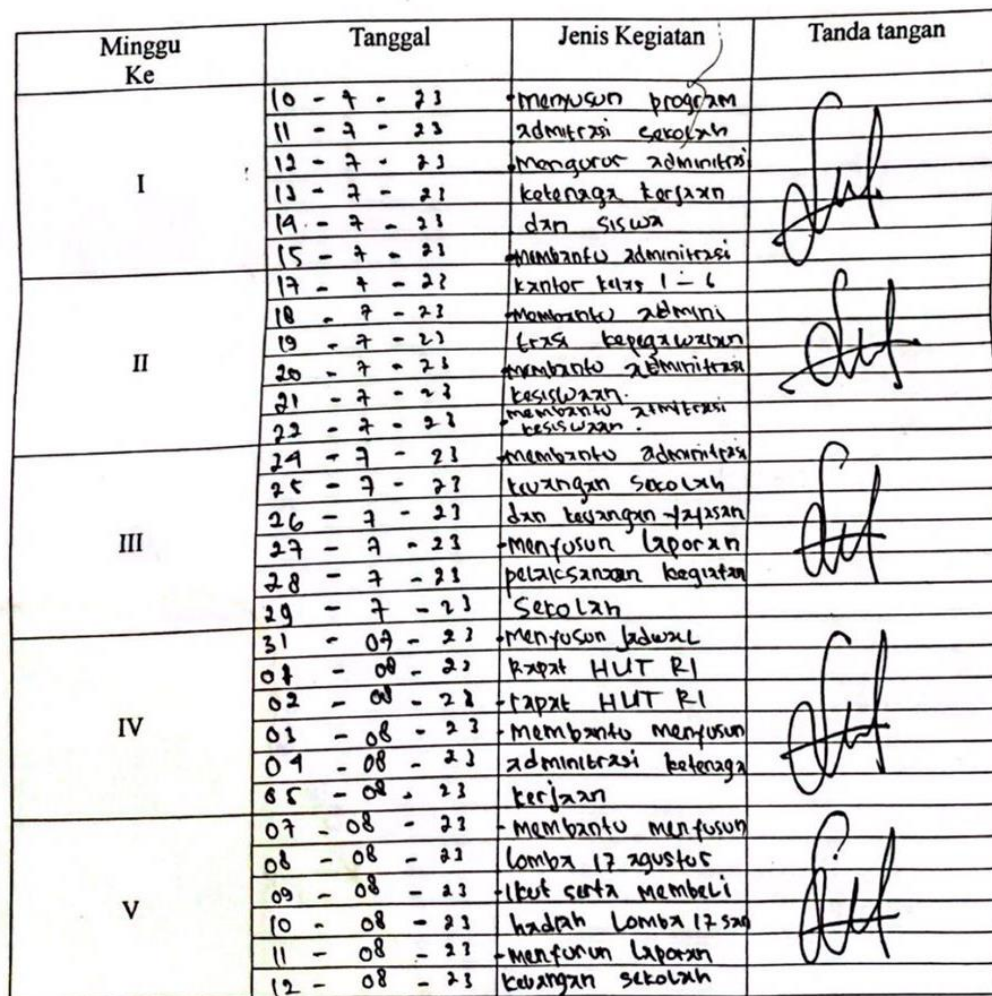 Minggu Ke Tanggal Jenis Kegiatan Tanda tangan
I
10 - 7 - 23 -menyusun program
11 - 7 - 23 admitrasi sekolah
12 - 7 - 23 -Mengurus adminitrasi
13 - 7 - 23 ketenaga kerjaan
14 - 7 - 23 dan siswa
15 - 7 - 23 -membantu adminitrasi
II
17 - 7 - 23 kantor kelas 1 - 6
18 - 7 - 23 -Membantu admini
19 - 7 - 23 trasi kepegawaian
20 - 7 - 23 -membantu adminitrasi
21 - 7 - 23 kesiswaan.
22 - 7 - 23 -membantu admitrasi kesiswaan.
III
24 - 7 - 23 -membantu adminitrasi
25 - 7 - 23 keuangan sekolah
26 - 7 - 23 dan keuangan yayasan
27 - 7 - 23 -Menyusun laporan
28 - 7 - 23 pelaksanaan kegiatan
29 - 7 - 23 Sekolah
IV
31 - 07 - 23 -Menyusun jadwal
01 - 08 - 23 Rapat HUT RI
02 - 08 - 23 -rapat HUT RI
03 - 08 - 23 -Membantu menyusun
04 - 08 - 23 adminitrasi ketenaga
05 - 08 - 23 kerjaan
V
07 - 08 - 23 -Membantu menyusun
08 - 08 - 23 lomba 17 agustus
09 - 08 - 23 -Ikut serta Membeli
10 - 08 - 23 hadiah Lomba 17 san
11 - 08 - 23 -menyusun Laporan
12 - 08 - 23 keuangan sekolah